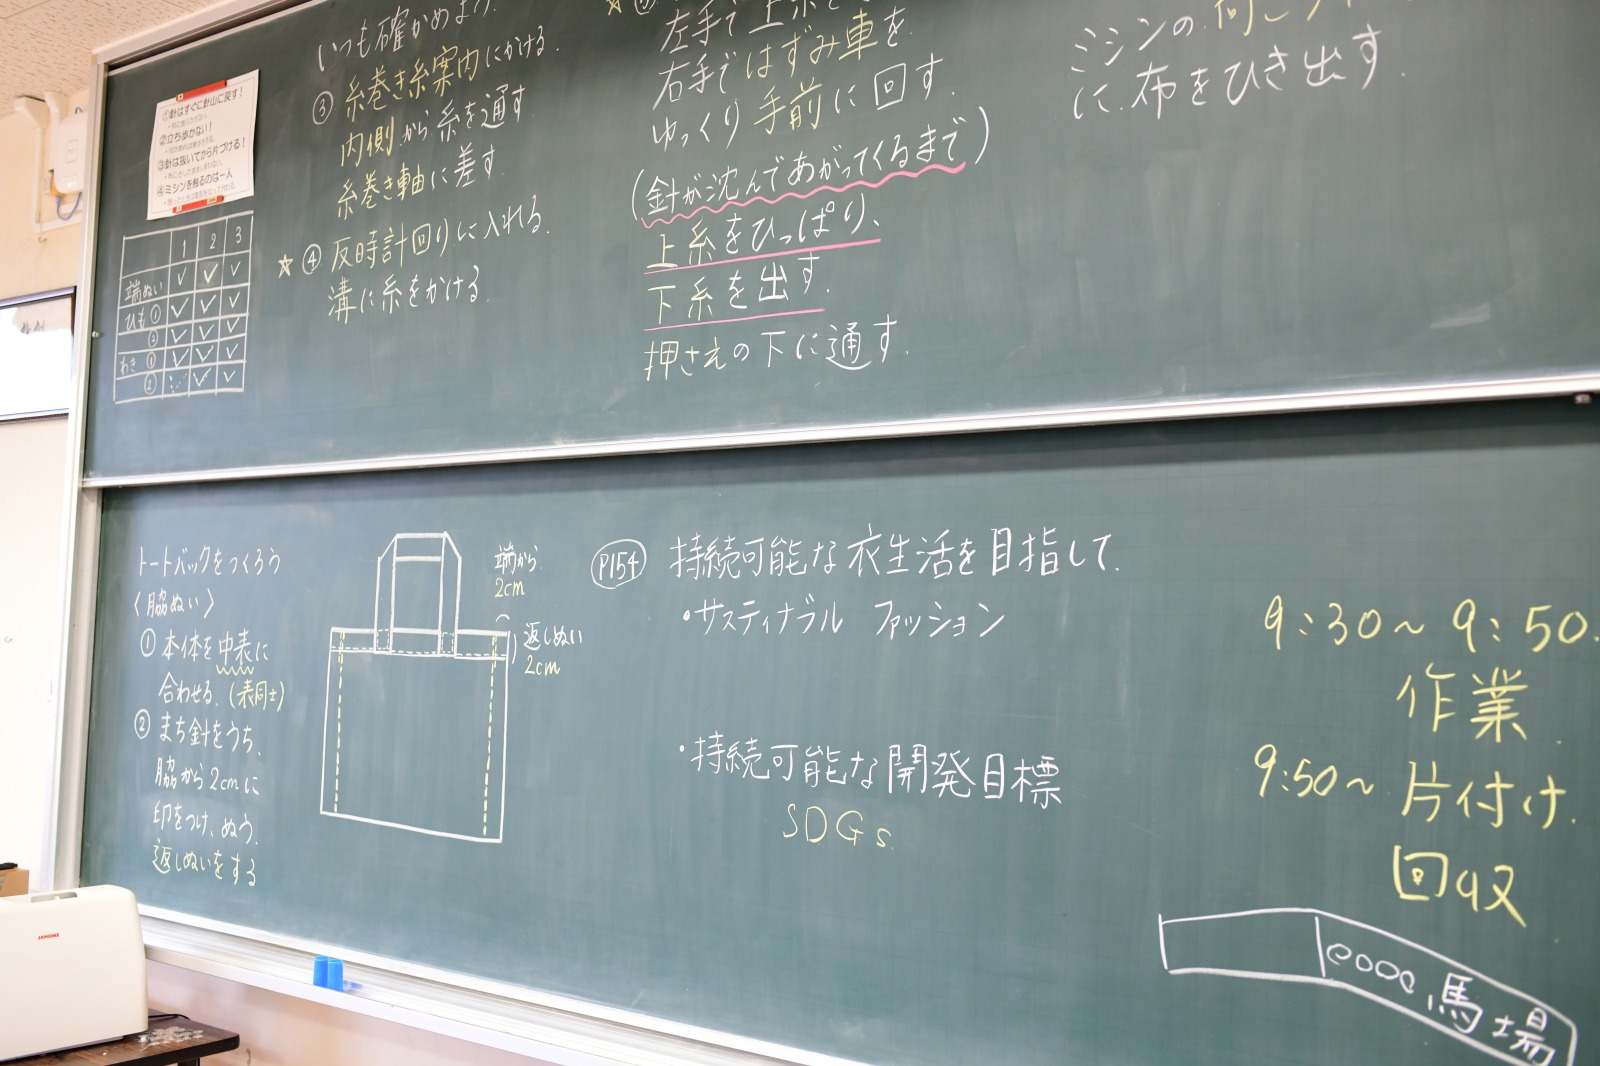 ①針はすぐに針山に戻す!
②立ち歩かない!
③針は抜いてから片づける!
④ミシンを触るのは一人
1 2 3
端ぬい ✓ ✓ ✓
ひも① ✓ ✓ ✓
② ✓ ✓ ✓
わき① ✓ ✓ ✓
② ✓ ✓
いつも確かめよう.
③ 糸巻き糸案内にかける.
内側から糸を通す
糸巻き軸に差す
☆④ 反時計回りに入れる.
溝に糸をかける.
左手で上糸を
右手ではずみ車を.
ゆっくり手前に回す.
(針が沈んであがってくるまで)
上糸をひっぱり、
下糸を出す.
押さえの下に通す.
ミシンの向こう
に布をひき出す.
トートバックをつくろう
〈脇ぬい〉
① 本体を中表に
合わせる.(表同士)
② まち針をうち、
脇から2cmに
印をつけ、ぬう.
返しぬいをする
端から
2cm
返しぬい
2cm
P154 持続可能な衣生活を目指して.
・サスティナブル ファッション
・持続可能な開発目標
SDGs.
9:30~9:50.
作業.
9:50~片付け.
回収
馬場
JANOME